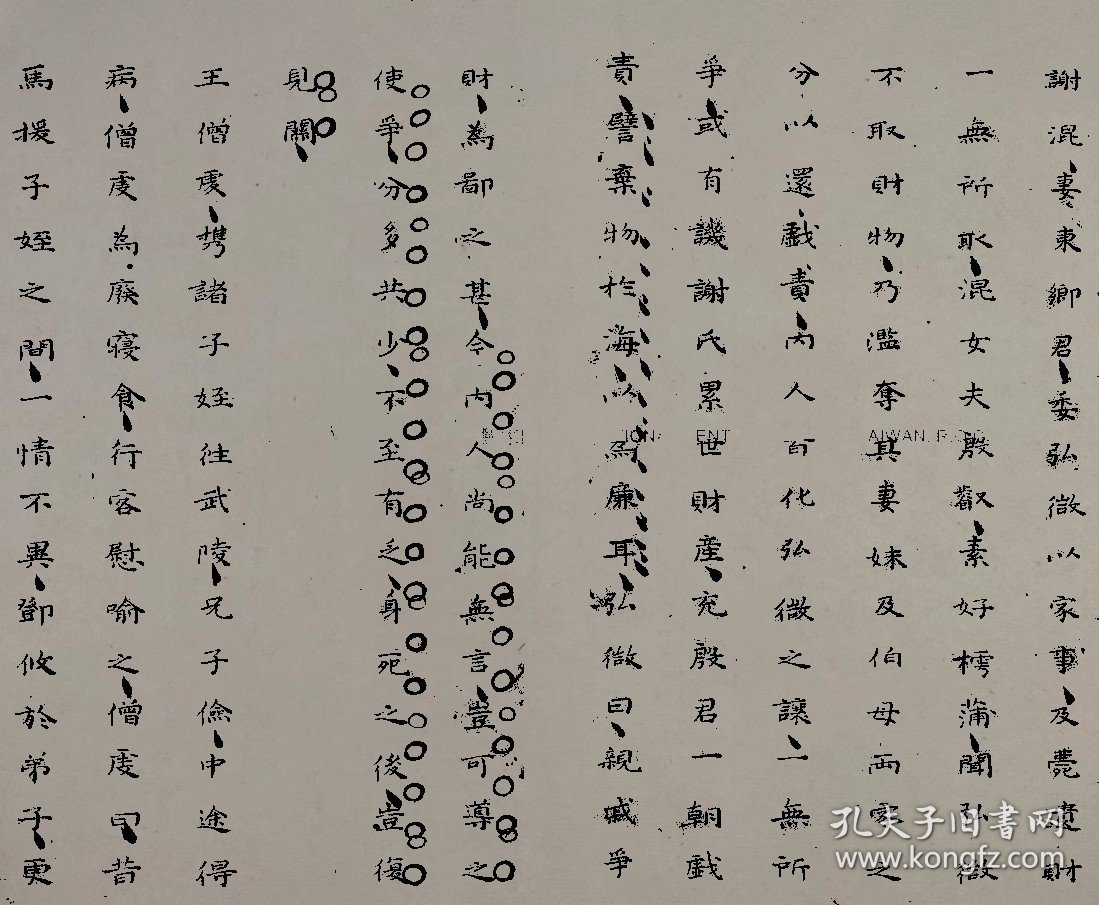 謝混妻東鄉君委弘微以家事及薨遺財
一無所取混女夫殷叡素好樗蒲聞弘微
不取財物乃濫奪其妻妹及伯母兩家之
分以還戲責內人皆化弘微之讓一無所
爭或有譏謝氏累世財產充殷君一朝戲
責譬棄物於海以為廉耳弘微曰親戚爭
財為鄙之甚今內人尚能無言豈可導之
使爭分多共少不至有乏身死之後豈復
見關
王僧虔攜諸子姪往武陵兄子儉中途得
病僧虔為廢寢食行客慰喻之僧虔曰昔
馬援子姪之間一情不異鄧攸於弟子更
孔夫子旧书网
www.kongfz.com